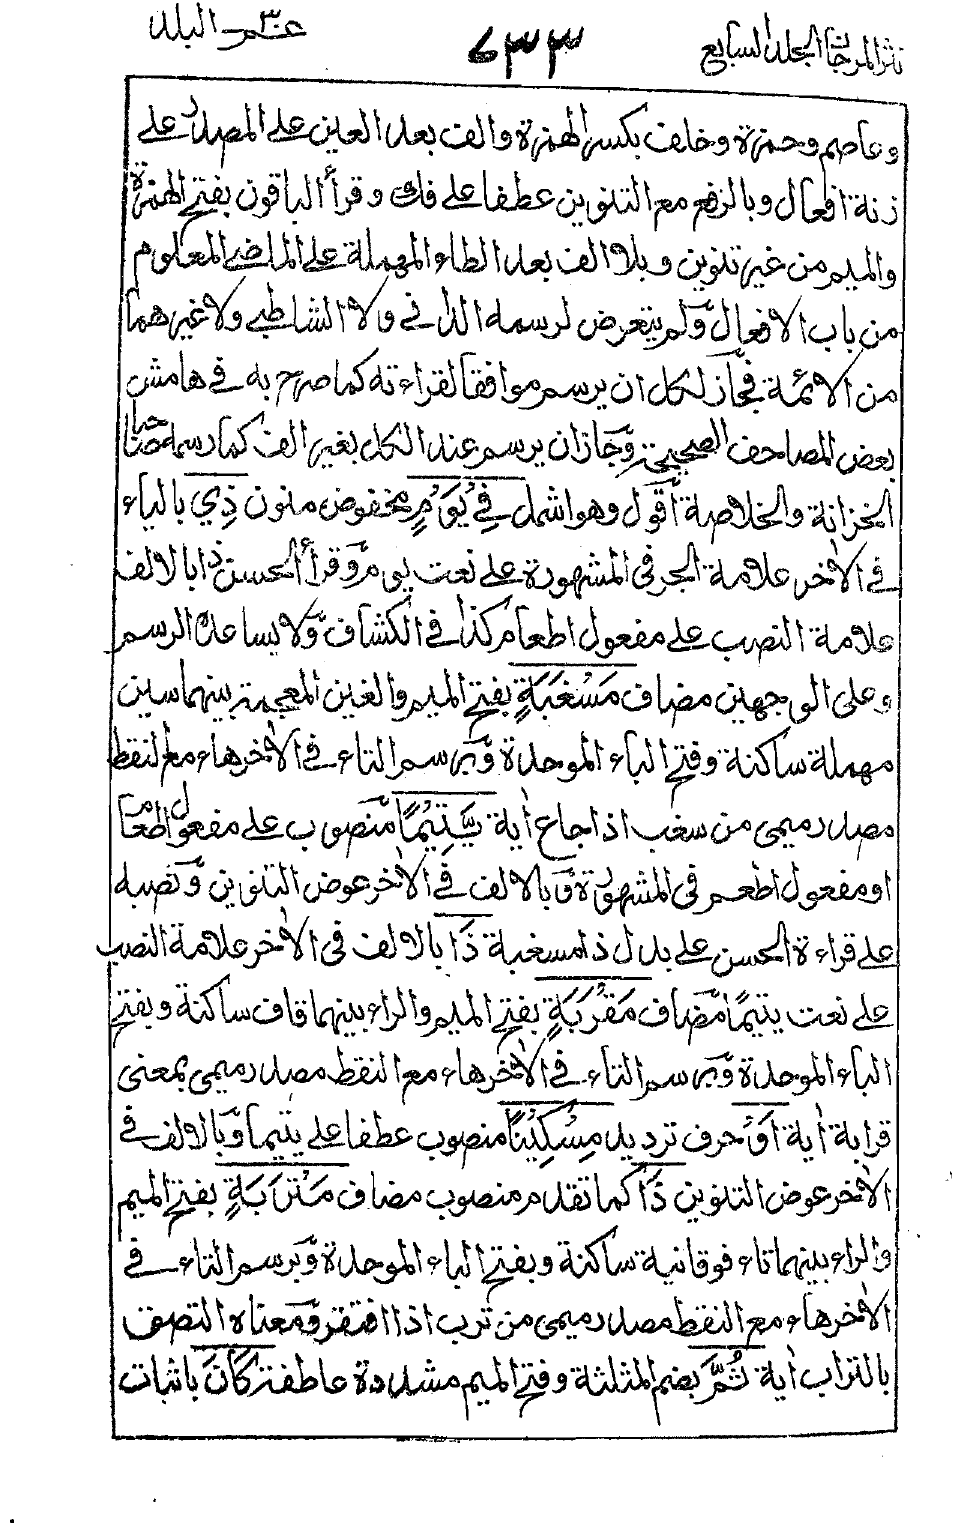 نثر المرجان المجلد السابع
٧٣٣
عم٣٠ البلد
وعاصم وحمزة وخلف بكسر الهمزة والف بعد العين على المصدر على
زنة افعال وبالرفع مع التنوين عطفا على فك وقرأ الباقون بفتح الهمزة
والميم من غير تنوين وبلا الف بعد الطاء المهملة على الماضي المعلوم
من باب الافعال ولم يتعرض لرسمه الداني ولا الشاطبي ولا غيرهما
من الائمة فجاز لكل ان يرسم موافقا لقراءته كما صرح به في هامش
بعض المصاحف الصحيحة وجاز ان يرسم عند الكل بغير الف كما رسمه صاحبا
الخزانة والخلاصة اقول وهو اشمل فِي يَوْمٍ مخفوض منون ذِي بالياء
في الاخر علامة الجر في المشهورة على نعت يوم وقرأ الحسن ذا بالالف
علامة النصب على مفعول اطعام كذا في الكشاف ولا يساعده الرسم
وعلى الوجهين مضاف مَسْغَبَةٍ بفتح الميم والغين المعجمة بينهما سين
مهملة ساكنة وفتح الباء الموحدة وبرسم التاء في الاخر هاء مع النقط
مصدر ميمى من سغب اذا جاع اية يَتِيْمًا منصوب على مفعول اطعام
او مفعول اطعم في المشهورة وبالالف في الاخر عوض التنوين ونصبه
على قراءة الحسن على بدل ذا مسغبة ذَا بالالف في الاخر علامة النصب
على نعت يتيمًا مضاف مَقْرَبَةٍ بفتح الميم والراء بينهما قاف ساكنة وبفتح
الباء الموحدة وبرسم التاء في الاخر هاء مع النقط مصدر ميمى بمعنى
قرابة اية اَوْ حرف ترديد مِسْكِيْنًا منصوب عطفا على يتيما وبالالف في
الاخر عوض التنوين ذَا كما تقدم منصوب مضاف مَتْرَبَةٍ بفتح الميم
والراء بينهما تاء فوقانية ساكنة وبفتح الباء الموحدة وبرسم التاء في
الاخر هاء مع النقط مصدر ميمى من ترب اذا افتقر ومعناه التصق
بالتراب اية ثُمَّ بضم المثلثة وفتح الميم مشددة عاطفة كَانَ باثبات